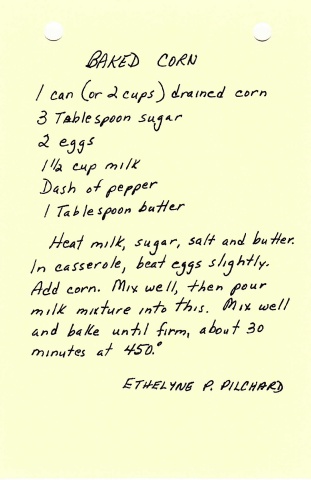 BAKED CORN
1 can (or 2 cups) drained corn
3 Tablespoon sugar
2 eggs
1 1/2 cup milk
Dash of pepper
1 Tablespoon butter
Heat milk, sugar, salt and butter.
In casserole, beat eggs slightly.
Add corn. Mix well, then pour
milk mixture into this. Mix well
and bake until firm, about 30
minutes at 450.°
ETHELYNE P. PILCHARD